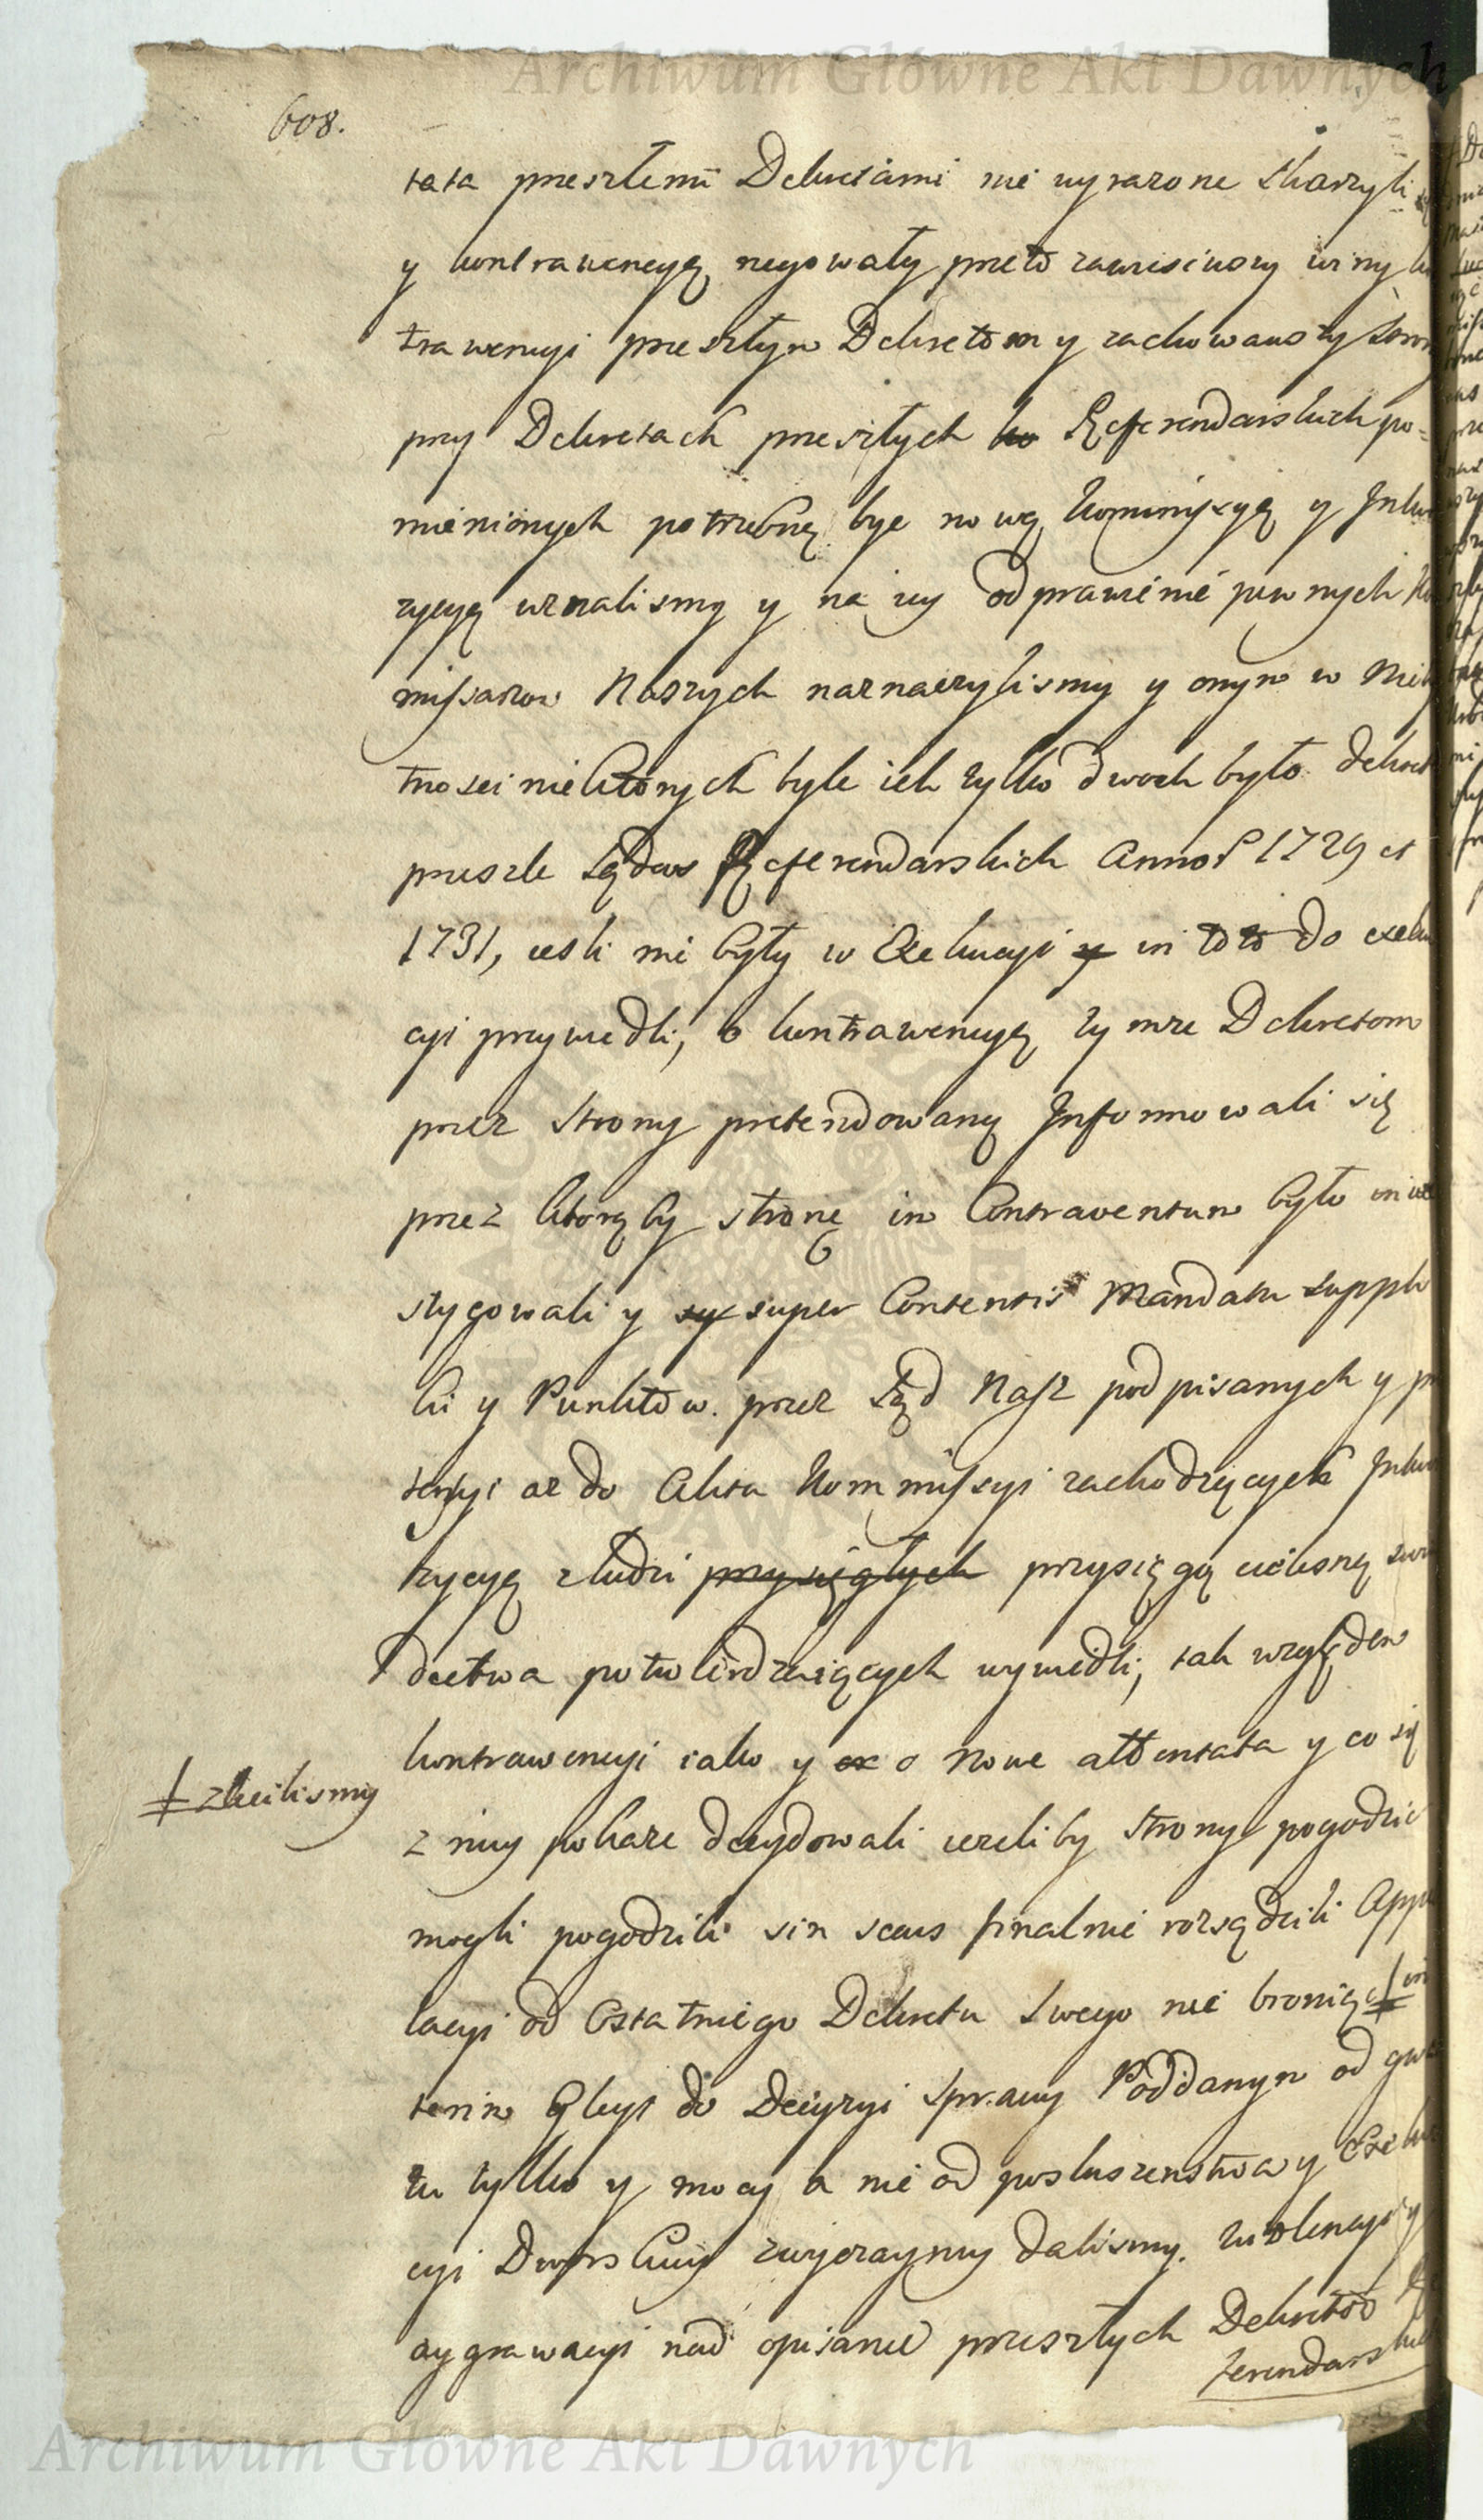 Archiwum Główne Akt Dawnych
608.
tata przeszłemi Dekretami nie wyrazone skarzyli
y kontrawencyą negowały przeto zawiesiwszy winy
trawencyi przeszłym Dekretom y zachowawszy stron
przy Dekretach przeszłych Referendarskich po=
mienionych potrzebną byc nową Kommissyą y Inkw
zycyą uznalismy y na iey odprawienie pewnych Ko
missarzow Naszych naznaczylismy y onym w Nieby
tnosci niektorych byle ich tylko dwoch było Dekret
przeszłe Sądow Referendarskich Anno 1729 et
1731, iesli nie były w Exekucyi in toto do exeku
cyi przywiedli, o kontrawencyą tymze Dekretom
przez strony pretendowaną Informowali się
przez ktorąby stronę in Contraventum było inwe
stygowali y super Contentis Mandatu suppli
ki y Punktow przez Sąd Nasz podpisanych y pre
tensyi az do Akta Kommissyi zachodzących Inkwi
zycyą z ludzi przysięgłych przysięgą cielesną swia
dectwa potwierdzaiących wywiedli, tak względem
kontrawencyi iako y o nowe attentata y co się
‡ zlecilismy
z niey pokaze decydowali iezeliby strony pogodzic
mogli pogodzili sin secus finalnie rozsądzili Appe
lacyi od Ostatniego Dekretu swego nie broniąc ‡ in
terim Gleyt do Decyzyi sprawy Poddanym od gwał
tu tylko y mocy a nie od posłuszenstwa y Exeku
cyi Dworskiey zwyczayney dalismy.
aggrawacyi nad opisanie przeszłych Dekretow Re
ferendarskich
Archiwum Główne Akt Dawnych